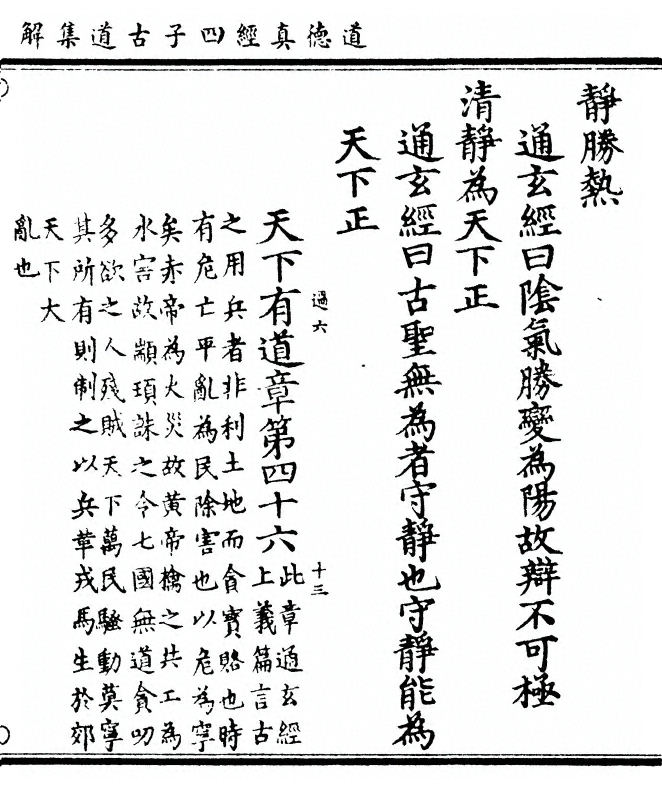 道德真經四子古道集解
靜勝熱
通玄經曰隂氣勝變為陽故辯不可極
清靜為天下正
通玄經曰古聖無為者守靜也守靜能為
天下正
過六
十三
天下有道章第四十六
此章通玄經
上義篇言古
之用兵者非利土地而貪寶賂也時
有危亡平亂為民除害也以危為寧
矣赤帝為火災故黃帝擒之共工為
水害故顓頊誅之今七國無道貪叨
多欲之人殘賊天下萬民騷動莫寧
其所有則制之以兵革戎馬生於郊
天下大
亂也